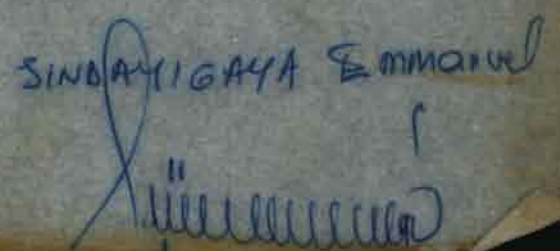 SINDAYIGAYA Emmanuel